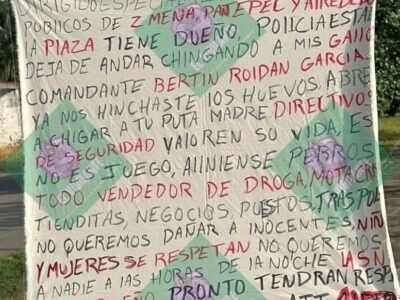 DIRIGIDO ESPECIAL
PUBLICOS DE Z MENA, PANTEPEC Y ALREDED
LA PLAZA TIENE DUEÑO, POLICIA ESTA
DEJA DE ANDAR CHINGANDO A MIS GALLO
COMANDANTE BERTIN ROIDAN GARCIA.
YA NOS HINCHASTE LOS HUEVOS, ABRE
A CHIGAR A TU PUTA MADRE, DIRECTIVOS
DE SEGURIDAD VALOREN SU VIDA, ES
NO ES JUEGO, ALINIENSE PERROS
TODO VENDEDOR DE DROGA, MOTACR
TIENDITAS, NEGOCIOS, PUESTOS, TRASPA
NO QUEREMOS DAÑAR A INOCENTES, NIN
Y MUJERES SE RESPETAN NO QUEREMOS
A NADIE A LAS HORAS DE LA NOCHE LAS N
PRONTO TENDRAN RESP